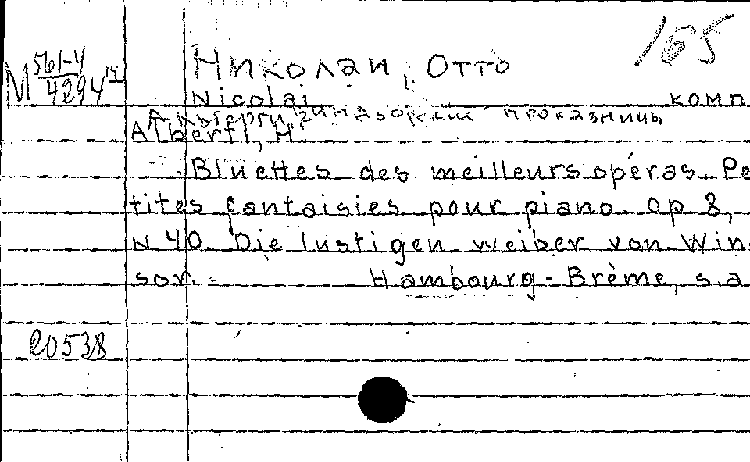 165
М 561-4
4294
Николаи, Отто
Nicolai комп
виндзорские проказницы
Alberti, H.
Bluettes des meilleurs opéras. Pe
tites fantaisies pour piano op 8,
N 40. Die lustigen weiber von Win
sor. Hambourg-Brème, s.a
20538